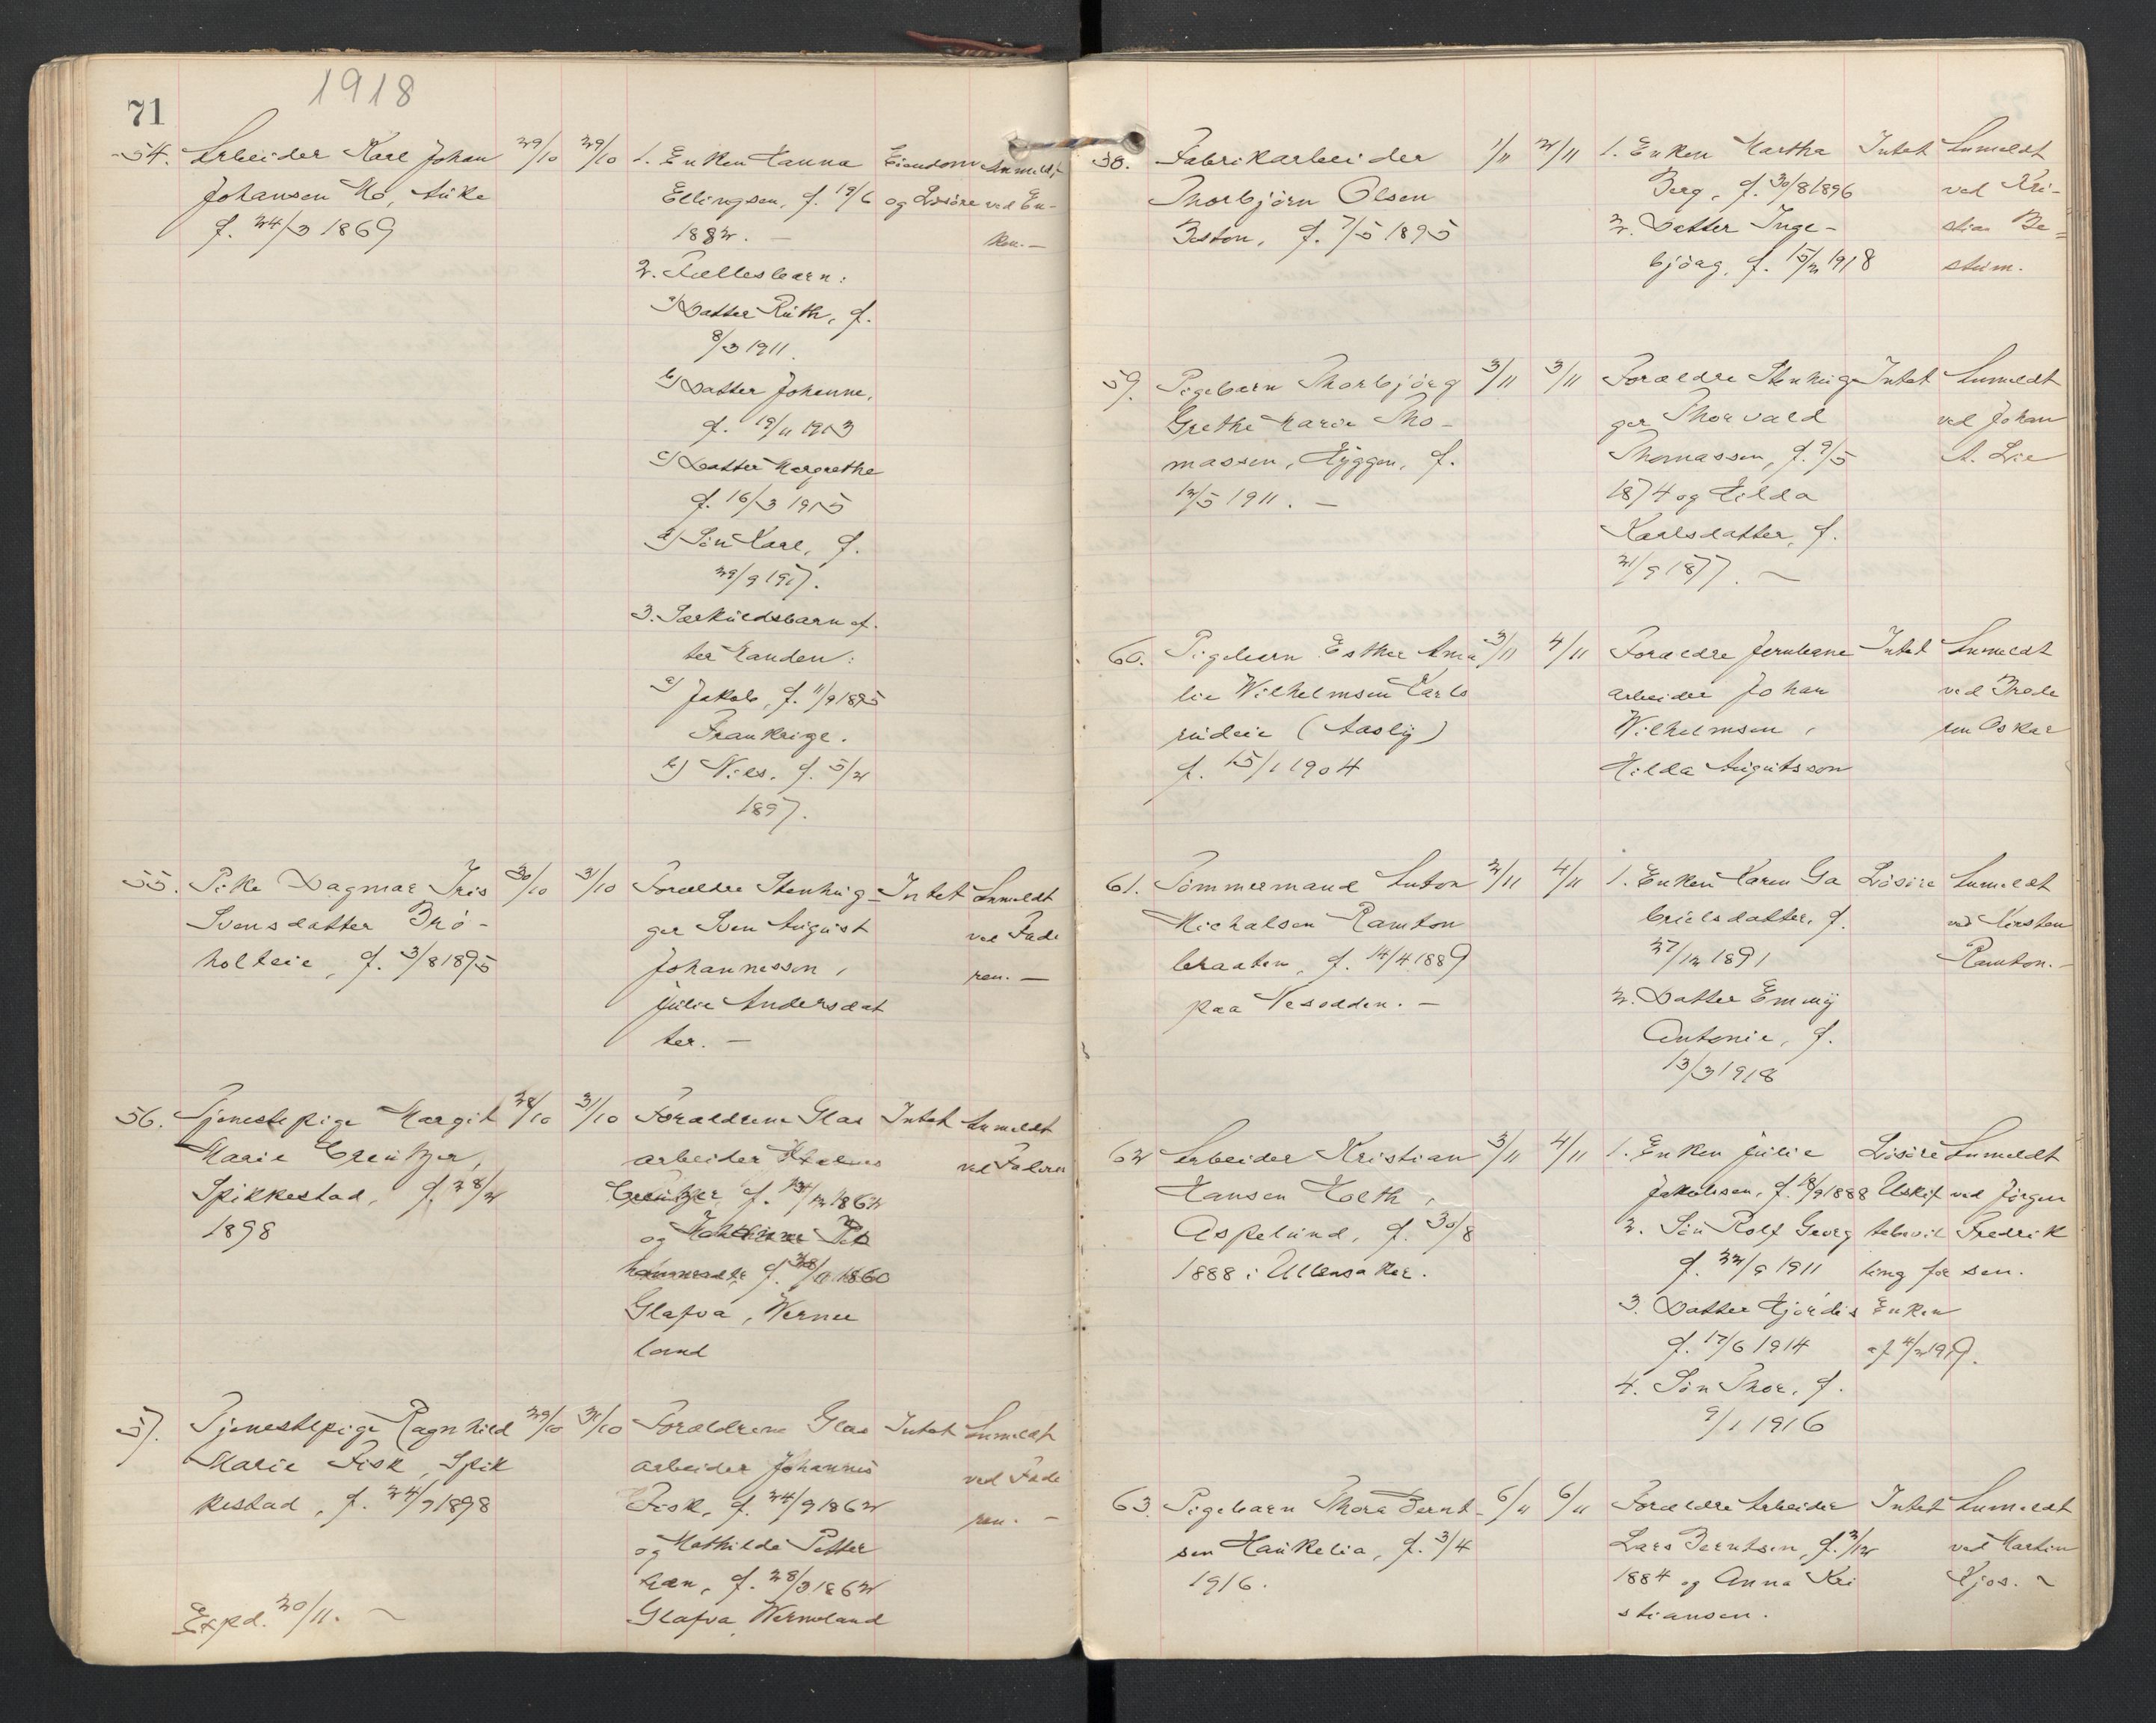 1918
71
54. Arbeider Karl Johan 29/10 29/10 1. Enken Hanna Eiendom Anmeldt
Johansen Mo, Auke Ellingsen, f. 19/6 og Løsøre ved En-
f. 24/3 1869 1882. — ken. —
2. Fællesbarn:
a) Datter Ruth, f.
8/3 1911.
b) Datter Johanne,
f. 19/11 1913
c) Datter Margrethe
f. 16/3 1915
d) Søn Karl, f.
29/9 1917.
3. Særkuldsbarn ef-
ter Manden:
a) Jakob, f. 11/9 1895
Frankrige.
b) Nils, f. 5/2
1897.
55. Pike Dagmar Iris 30/10 31/10 Forældre Stenhug- Intet Anmeldt
Svensdatter Brø- ger Sven August ved Fade
holteie, f. 3/8 1895 Johannessen, ren. —
Julie Andersdat
ter. —
56. Tjenestepige Margit 28/10 31/10 Forældrene Glas Intet Anmeldt
Marie Creutzer, arbeider ved Faderen
Spikkestad, f. 28/2 Creutzer f. 24/12 1862
1898 og
f. 28/11 1860
Glafva, Werme
land
57. Tjenestepige Ragnhild 29/10 31/10 Forældrene Glas Intet Anmeldt
Marie Fisk, Spik arbeider Johannes ved Fade
kestad, f. 24/7 1898 Fisk, f. 24/9 1862 ren. —
og Mathilde Petter
Glafva, Wermeland
Expd. 30/11. —
58. Fabrikarbeider 1/11 2/11 1. Enken Martha Intet Anmeldt
Thorbjørn Olsen Berg, f. 30/8 1896 ved Kri-
Beston, f. 7/5 1895 2. Datter Inge- stian Be=
bjørg, f. 15/2 1918 stum.
59. Pigebarn Thorbjørg 3/11 3/11 Forældre Stenhug Intet Anmeldt
Grethe Marie Tho- ger Thorvald ved Johan
massen, Hyggen, f. Thomassen, f. 9/5 A. Lie
12/5 1911. — 1874 og Hilda
Karlsdatter, f.
21/9 1877. —
60. Pigebarn Esther Ama 3/11 4/11 Forældre Jernbane Intet Anmeldt
lie Wilhelmsen Karls arbeider Johan ved Brode
rudeie (Aasly) Wilhelmsen, ren Oskar
f. 15/1 1904 Hilda Augutsson
61. Tømmermand Anton 2/11 4/11 1. Enken Karen Ga Løsøre Anmeldt
Michalsen Ramton brielsdatter, f. ved Kirsten
braaten, f. 14/4 1889 27/12 1891 Ramton. —
paa Nesodden. — 2. Datter Emmy
Antonie, f.
13/3 1918
62 Arbeider Kristian 3/11 4/11 1. Enken Julie Løsøre Anmeldt
Hansen Holth, Jakobsen, f. 18/9 1888 Uskif ved Jørgen
Aspelund, f. 30/8 2. Søn Rolf Georg tebevil Fredrik
1888 i Ullensaker. f. 22/9 1911 ling for sen.
3. Datter Hjørdis Enken
f. 17/6 1914 af 4/2 1919.
4. Søn Thor, f.
9/1 1916
63. Pigebarn Thora Bernt- 6/11 6/11 Forældre Arbeider Intet Anmeldt
sen Haukelia, f. 3/4 Lars Berntsen, f. 3/12 ved Martin
1916. 1884 og Anna Kri Kjos. ~
stiansen.